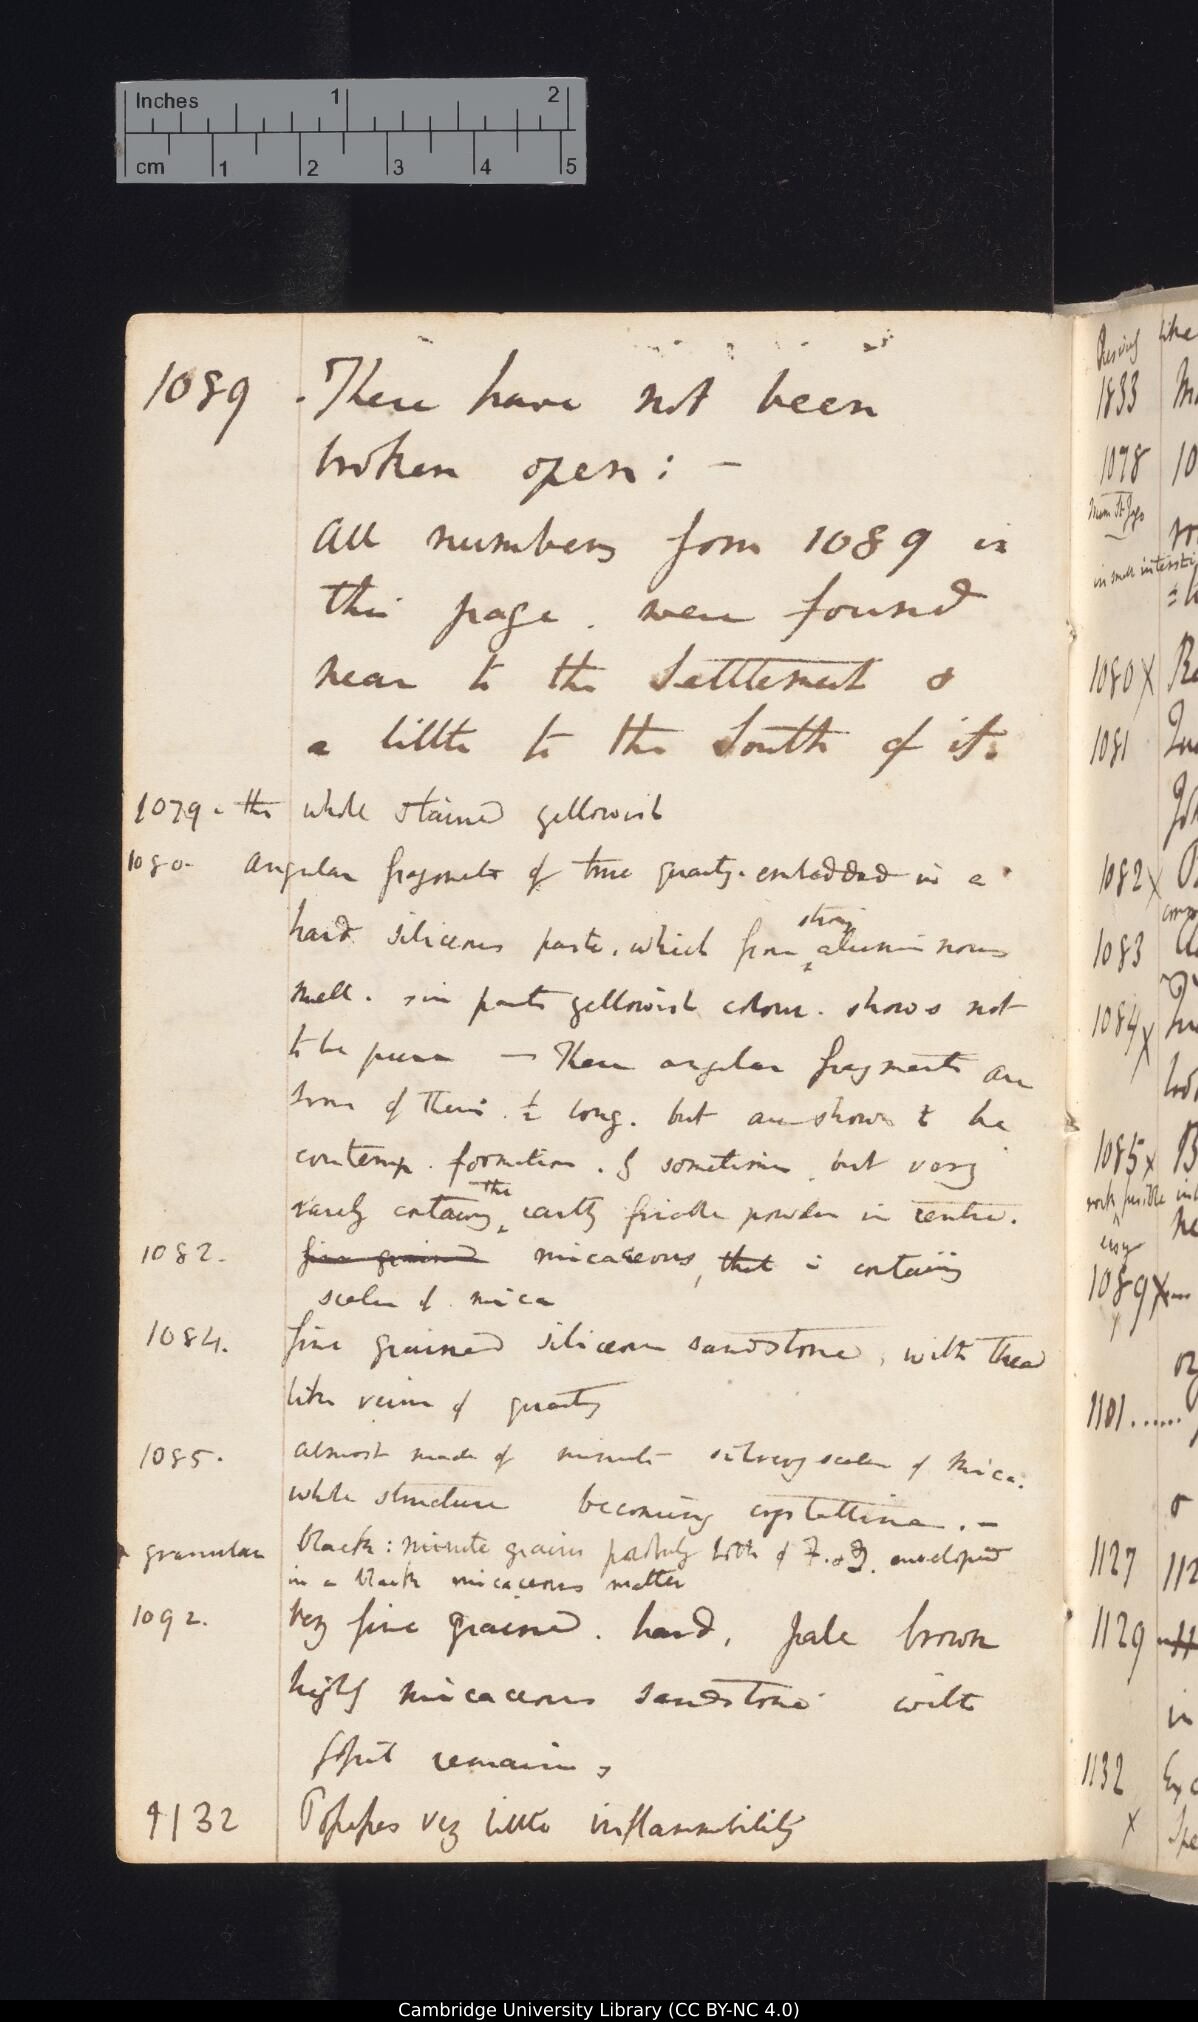 Inches 1 2
cm 1 2 3 4 5
1089 . These have not been
broken open: —
All numbers from 1089 in
this page. were found
near to the Settlement &
a little to the South of it.
1079. the whole stained yellowish
1080. angular fragments of true quartz. embedded in a
hard siliceous paste. which from strong aluminous
smell. & in parts yellowish colour. shows not
to be pure — These angular fragments are
some of them ½ long. but are shown to be
contemp. formation. by sometimes, but very
rarely containing the earthy friable powder in centre.
1082. fine grained micaceous, that is containing
scales of mica
1084. fine grained siliceous sandstone, with thread
like veins of quartz
1085. almost made of minute silvery scales of Mica.
whole structure becoming crystalline. —
granular black: minute grains probably both of F. & Q. enveloped
in a black micaceous matter
1092. very fine grained. hard, pale brown
highly micaceous sandstone with
fossil remains
1132 Possesses very little inflammability
1833
1078
1080 x
1081
1082 x
1083
1084 x
1085 x
1089 x
1101......
1127
1129
1132
x
Cambridge University Library (CC BY-NC 4.0)